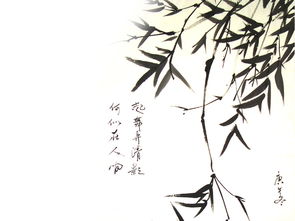 起舞弄清影
何似在人间
庚冬